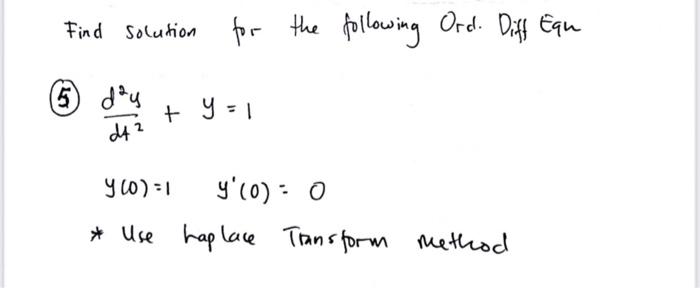 Find Solution for the following Ord. Diff Eqn
⑤ d²y/dt² + y = 1
y(0)=1 y'(0) = 0
* Use Laplace Transform method